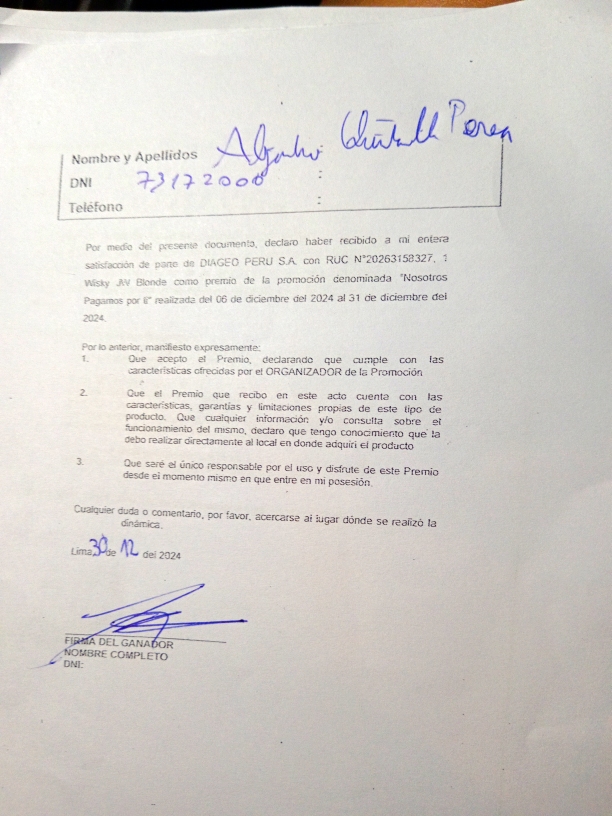 Nombre y Apellidos Perea
DNI 73172000 :
Teléfono :
Por medio del presente documento, declaro haber recibido a mi entera
satisfacción de parte de DIAGEO PERU S.A. con RUC N°20263158327, 1
Wisky JW Blonde como premio de la promoción denominada "Nosotros
Pagamos por ti" realizada del 06 de diciembre del 2024 al 31 de diciembre del
2024.
Por lo anterior, manifiesto expresamente:
1. Que acepto el Premio, declarando que cumple con las
características ofrecidas por el ORGANIZADOR de la Promoción
2. Que el Premio que recibo en este acto cuenta con las
características, garantías y limitaciones propias de este tipo de
producto. Que cualquier información y/o consulta sobre el
funcionamiento del mismo, declaro que tengo conocimiento que la
debo realizar directamente al local en donde adquirí el producto
3. Que saré el único responsable por el uso y disfrute de este Premio
desde el momento mismo en que entre en mi posesión.
Cualquier duda o comentario, por favor, acercarse al lugar dónde se realizó la
dinámica.
Lima, 30 de 12 del 2024
FIRMA DEL GANADOR
NOMBRE COMPLETO
DNI: